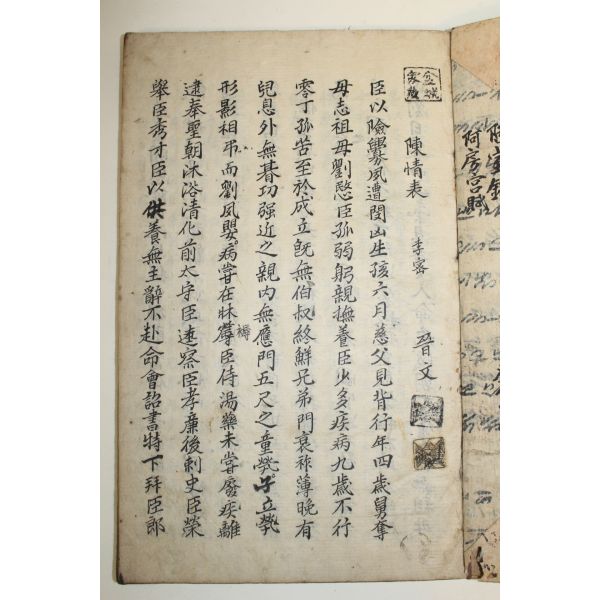 陋室銘
阿房宮賦
陳情表 李密 晉文
臣以險釁夙遭閔凶生孩六月慈父見背行年四歲舅奪
母志祖母劉愍臣孤弱躬親撫養臣少多疾病九歲不行
零丁孤苦至於成立旣無伯叔終鮮兄弟門衰祚薄晚有
兒息外無朞功强近之親內無應門五尺之童煢孑立煢
形影相吊而劉夙嬰病嘗在牀蓐褥臣侍湯藥未嘗廢疾離
逮奉聖朝沐浴清化前太守臣逵察臣孝廉後刺史臣榮
擧臣秀才臣以供養無主辭不赴命會詔書特下拜臣郎